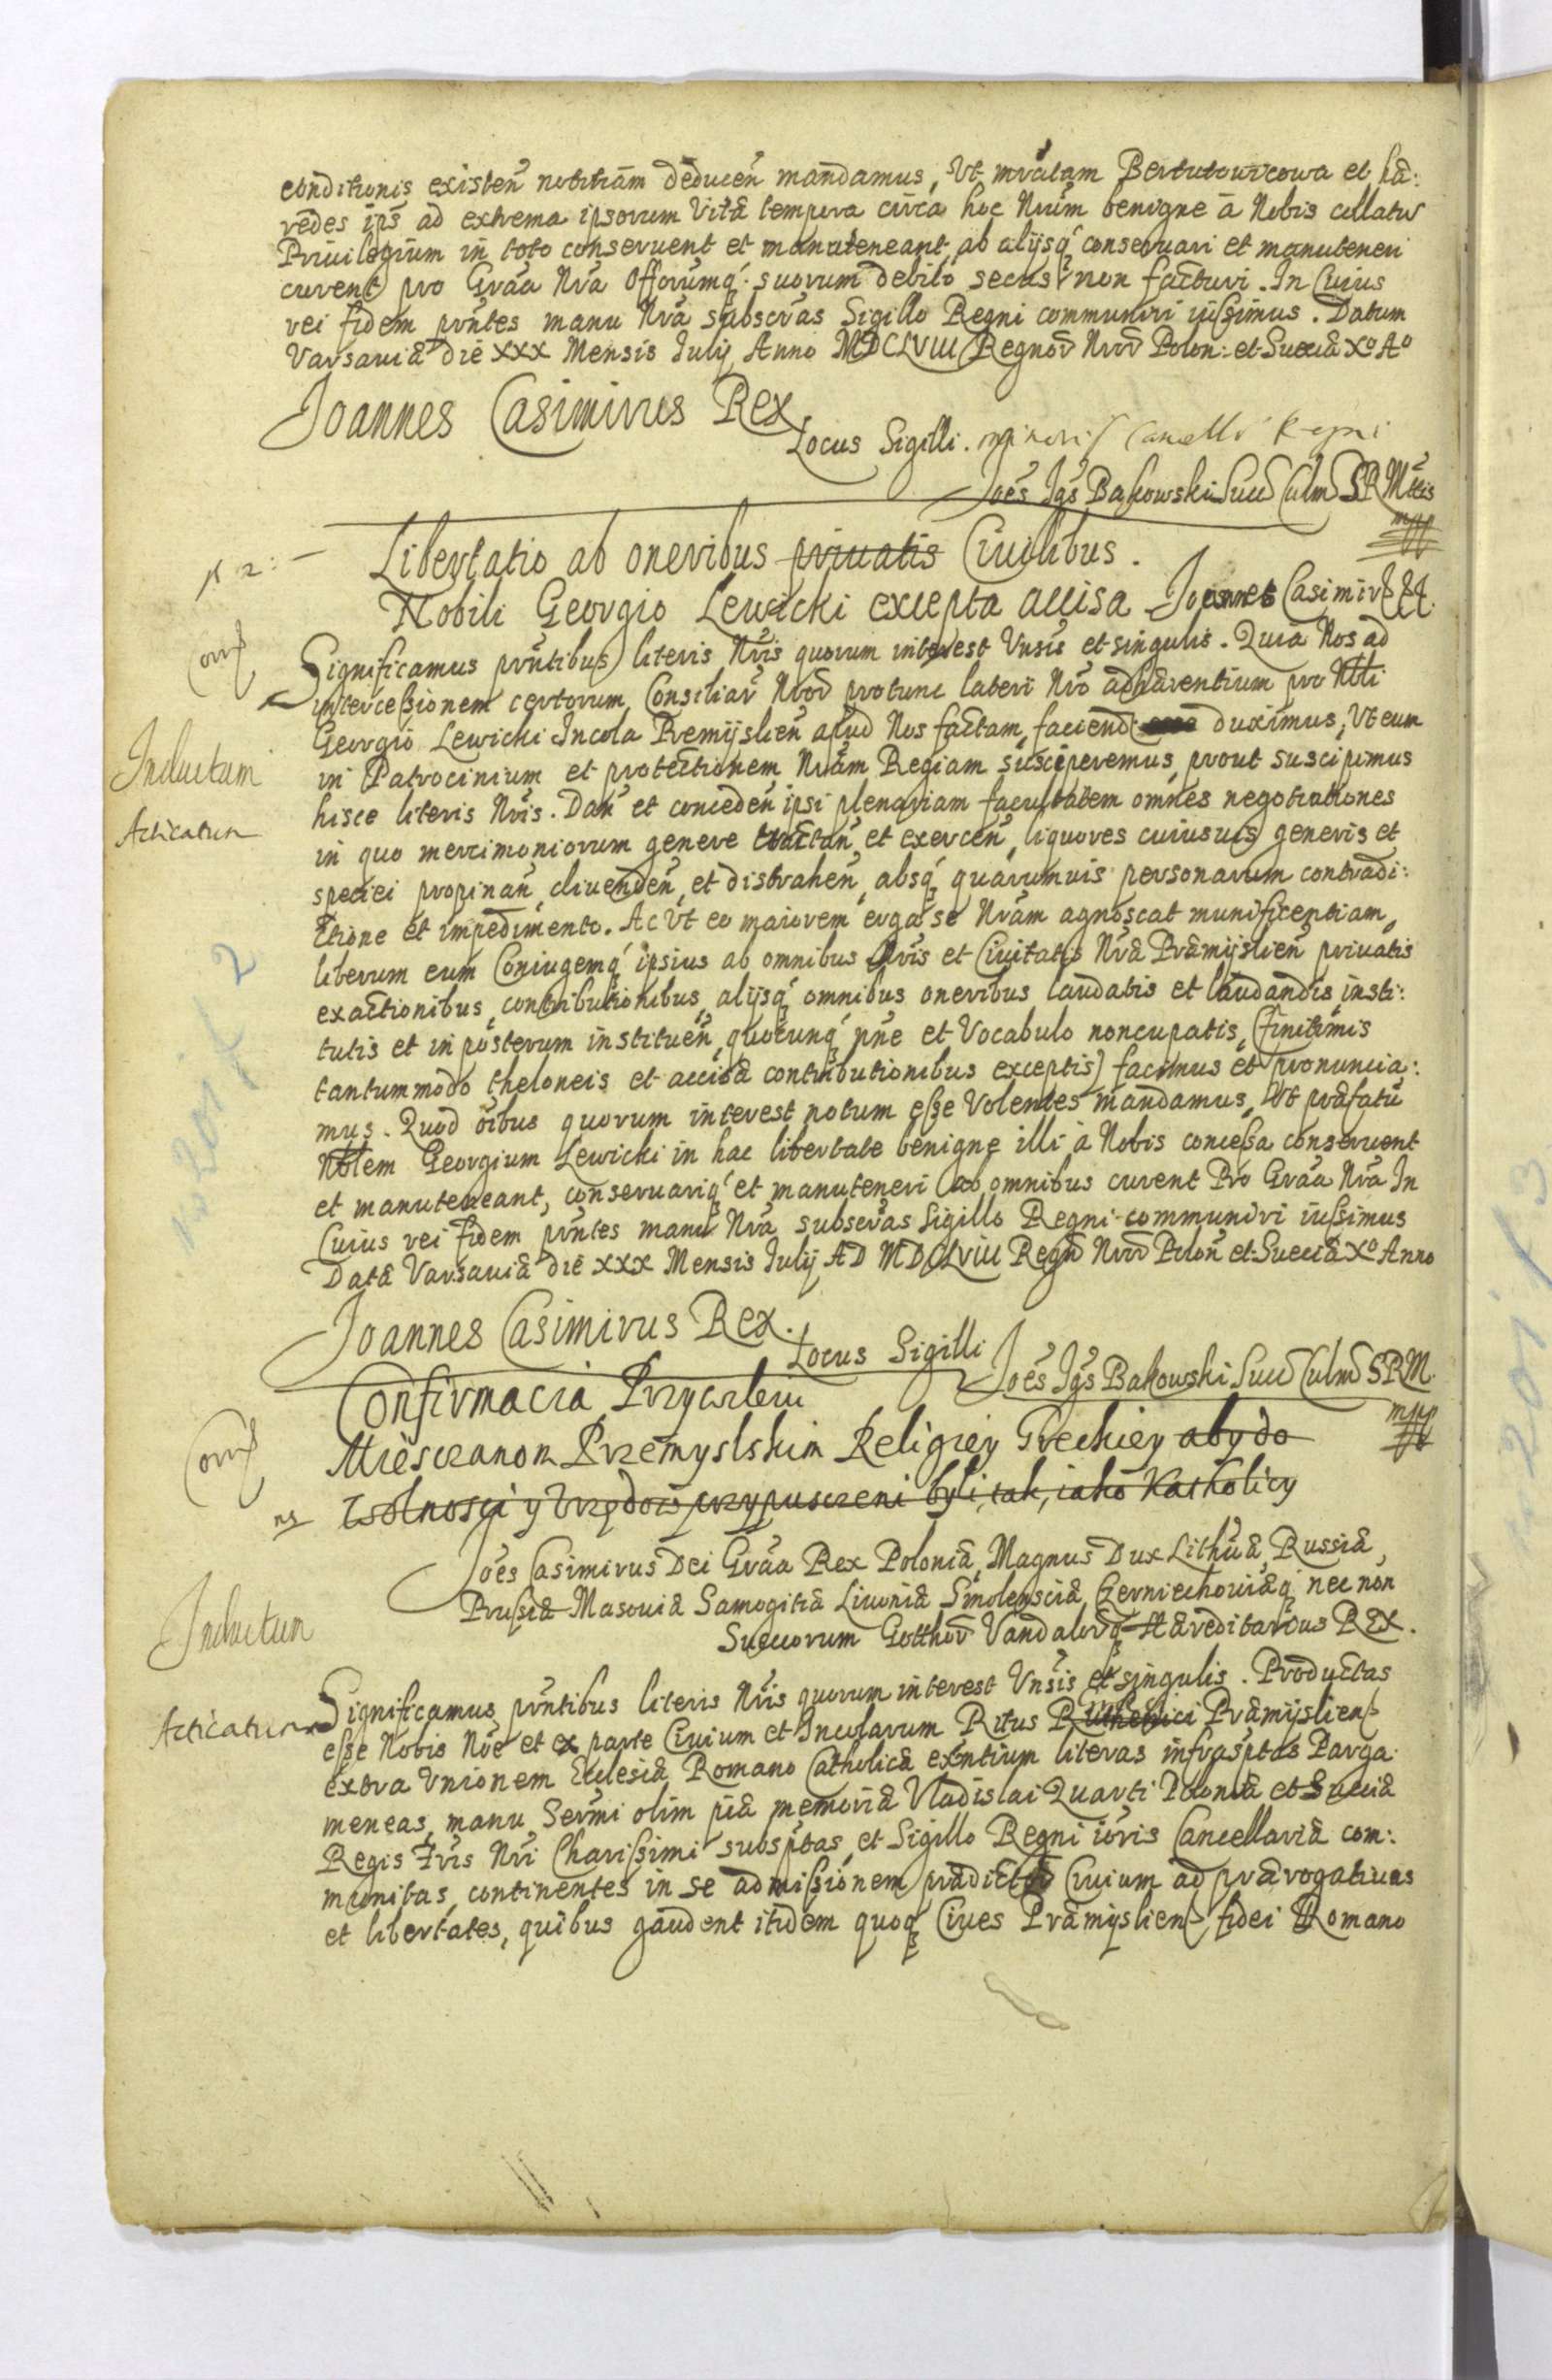 conditionis existen̄ notitiam deducen̄ mandamus, Ut mrātam Bertutowicowa et hæ:
redes ip̄s ad extrema ipsorum Vitæ tempora circa hoc Nrūm benigne a Nobis collatū
Priuilegium in toto conseruent et manuteneant, ab alijsq́ conseruari et manuteneri
curent pro Grāa Nrā Offōrumq́ suorum debito secus non facturi. In Cuius
rei fidem prn̄tes manu Nrā subscrās Sigillo Regni communiri iussimus. Datum
Varsauiæ die XXX Mensis Iulij Anno MDCLVIII Regnor̄ Nror̄ Polon: et Sueciæ Xo Ao
Joannes Casimirus Rex
Locus Sigilli. minoris Cancell Regni
Joēs Igs̄ Bakowski Succ Culm SRMttis
mpp
Libertatio ab oneribus priuatis Ciuilibus.
Nobili Georgio Lewicki excepta accisa Joannes Casimir
corr
Significamus prn̄tibus literis Nrīs quorum interest Vnsīs et singulis. Quia Nos ad
intercessionem certorum Consiliar̄ Nror̄ protunc lateri Nrō adhærentium pro Nbli
Georgio Lewicki Incola Premijslien̄ apud Nos factam, faciend duximus, Vt eum
Inductum
in Patrocinium et protectionem Nrām Regiam susciperemus, prout suscipimus
hisce literis Nrīs. Dan̄ et conceden̄ ipsi plenariam facultatem omnes negotiationes
Acticatum
in quo mercimoniorum genere tractan̄ et exercen̄, liquores cuiusuis generis et
speciei propinan̄, diuenden̄, et distrahen̄, absq́ quarumuis personarum contradi:
ctione et impedimento. Ac Vt eo maiorem erga se Nrām agnoscat munificentiam,
liberum eum Coniugemq́ ipsius ab omnibus Nrīs et Ciuitatis Nrā Præmijslien̄ priuatis
exactionibus, contributionibus, alijsq́ omnibus oneribus laudatis et laudandis, insti:
tutis et in posterum instituen̄, quocunq́ nn̄e et Vocabulo noncupatis, (finitimis
tantummodo theloneis et accisæ contributionibus exceptis) facimus et pronuncia:
mus. Quod ōibus quorum interest notum esse Volentes mandamus, Ut præfatū
Nblem Georgium Lewicki in hac libertate benigne illi à Nobis concessa conseruent
et manuteneant, conseruariq́ et manuteneri ab omnibus curent Pro Grāa Nrā In
Cuius rei fidem prn̄tes manu Nrā subscrās Sigillo Regni communiri iussimus
Datæ Varsauiæ die XXX Mensis Iulij AD MDCLVIII Regn̄ Nror̄ Polon̄ et Sueciæ Xo Anno
Joannes Casimirus Rex.
Locus Sigilli
Joēs Igs̄ Bakowski Succ Culm SRM.
mpp
Confirmacia Przywileiu
corr
Miesczanom Przemyslskim Religiey Greckiey aby do
ns Wolnosci y Vrzędow przypusczeni byli, tak, iako Katholicy
Joēs Casimirus Dei Grāa Rex Poloniæ, Magnus Dux Lithūæ, Russiæ,
Prussiæ Masouiæ Samogitiæ Liuoniæ Smolensciæ, Czerniechouiæq́ nec non
Inductum
Suecorum Gotthor̄ Vandalorq́ Hæreditarius REX.
Significamus prn̄tibus literis Nrīs quorum interest Vnsīs et singulis. Productas
Acticatum
esse Nobis Nōe et ex parte Ciuium et Incolarum Ritus Ruthenici Præmijsliens
extra Vnionem Ecclesiæ Romano Catholicæ exn̄tium literas infrasp̄tas Parga:
meneas, manu Serm̄i olim piæ memoriæ Vladislai Quarti Poloniæ et Sueciæ
Regis Frīs Nrī Charissimi subsp̄tas, et Sigillo Regni iōris Cancellariæ com:
munitas, continentes in se admissionem prædictor̄ Ciuium ad prærogatiuas
et libertates, quibus gaudent itidem quoq́ Ciues Præmijsliens, fidei Romano